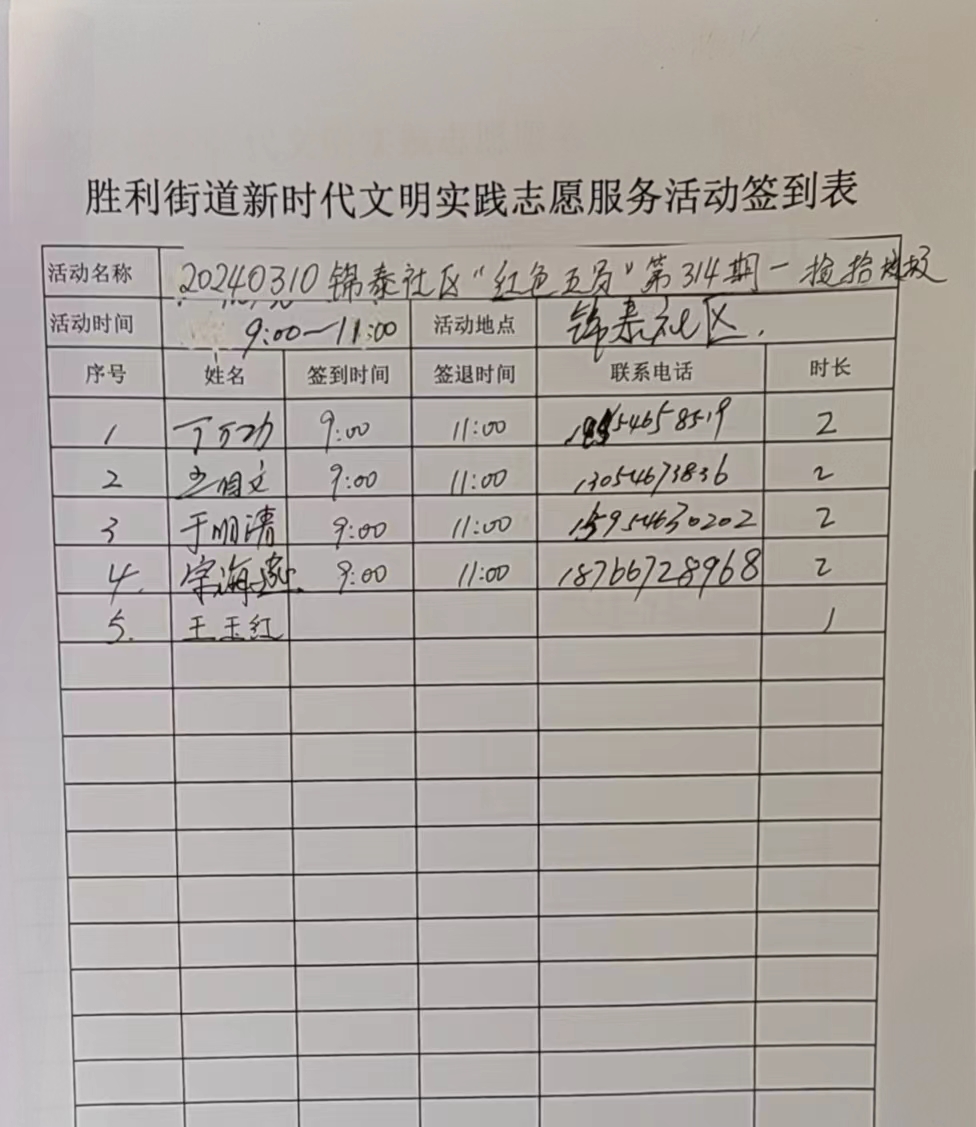 胜利街道新时代文明实践志愿服务活动签到表
活动名称 20240310锦泰社区“红色五员”第314期一捡拾垃圾
活动时间 9:00—11:00 活动地点 锦泰社区.
序号 姓名 签到时间 签退时间 联系电话 时长
1 丁万功 9:00 11:00 54658519 2
2 9:00 11:00 13054673836 2
3 于明清 9:00 11:00 15954630202 2
4. 宋海 9:00 11:00 18766728968 2
5. 王玉红 1